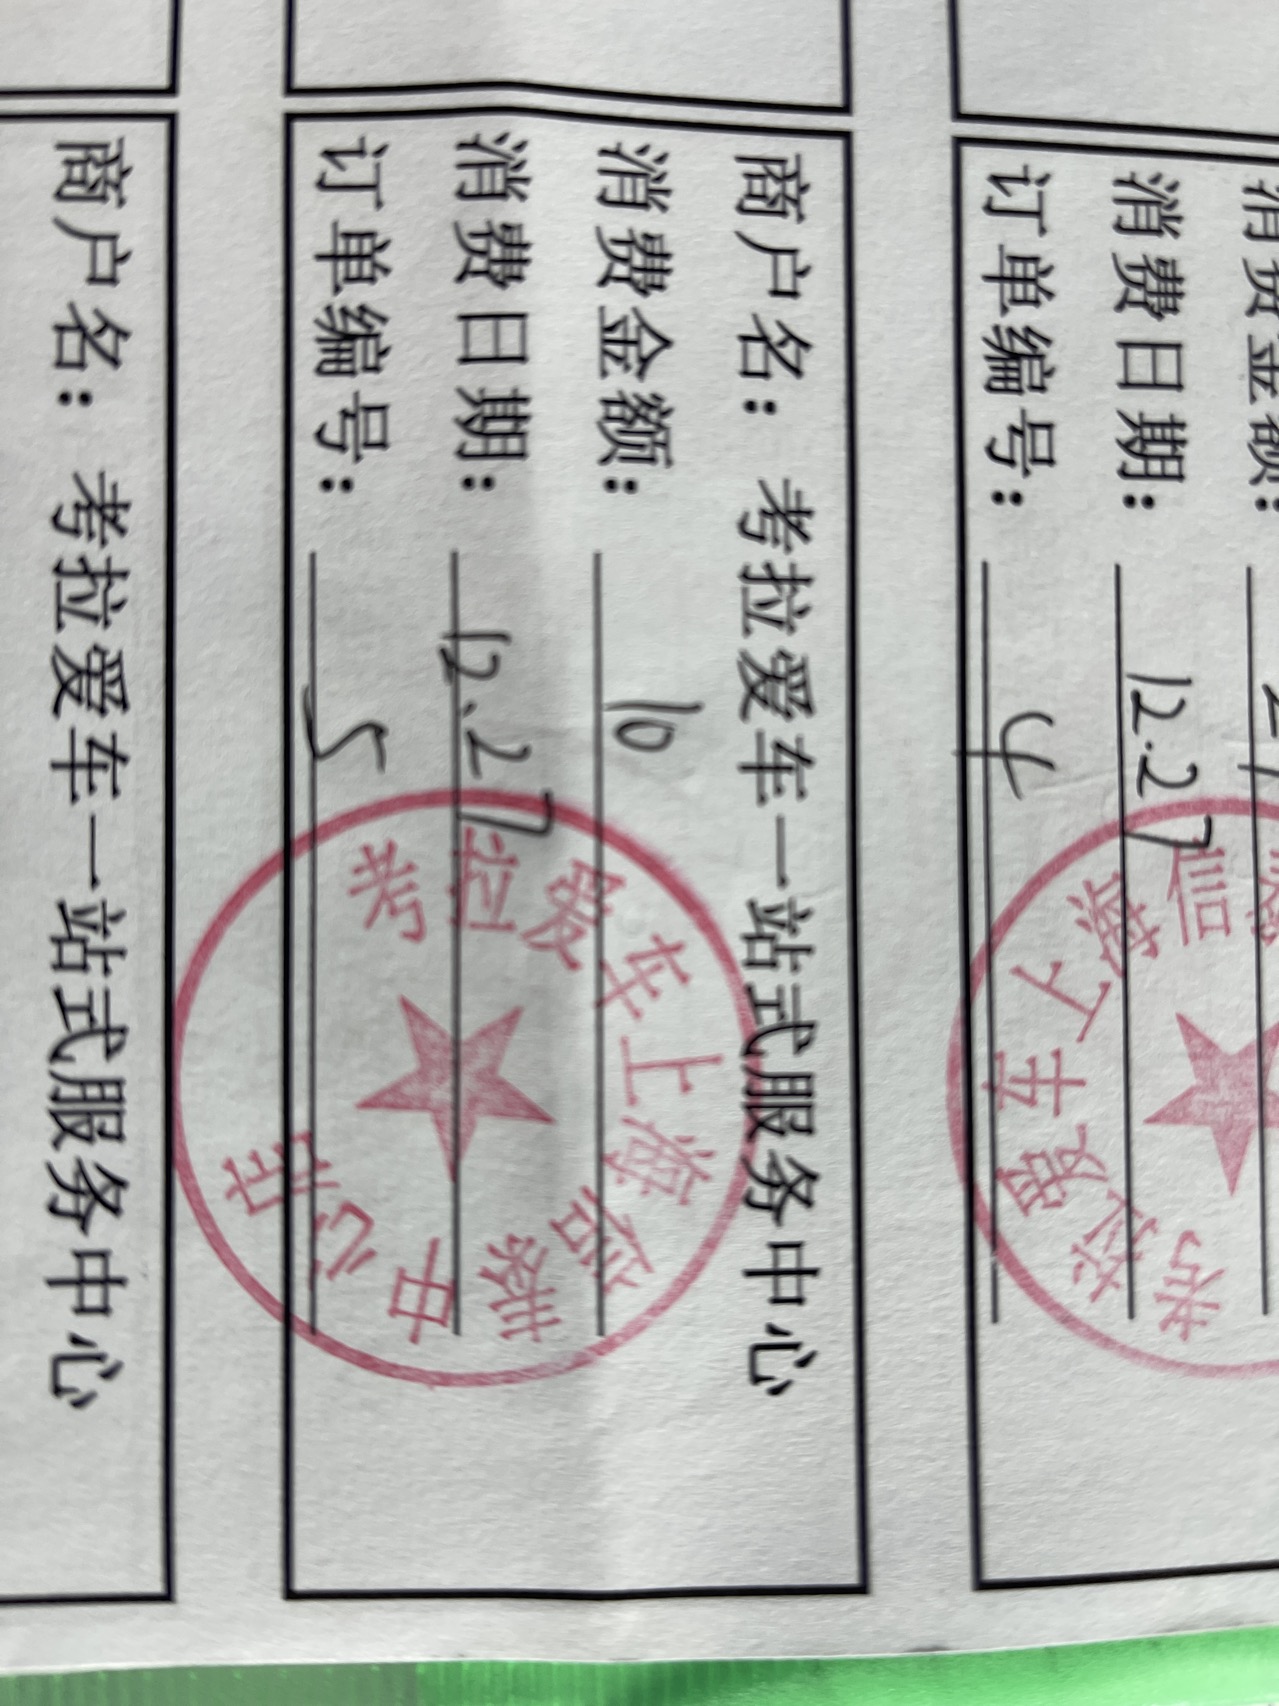 消费金额:
消费日期: 12.27
订单编号: 4
商户名: 考拉爱车一站式服务中心
消费金额: 10
消费日期: 12.27
订单编号: 5
考拉爱车上海
中心店
商户名: 考拉爱车一站式服务中心